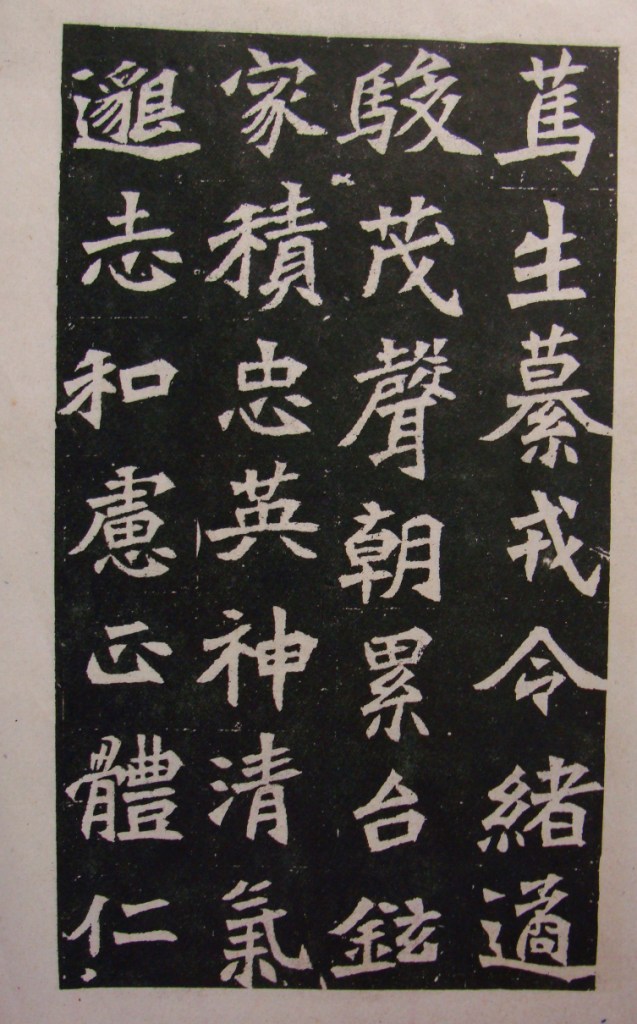 篤生纂戎令緒遹
駿茂聲朝累台鉉
家積忠英神清氣
邈志和慮正體仁